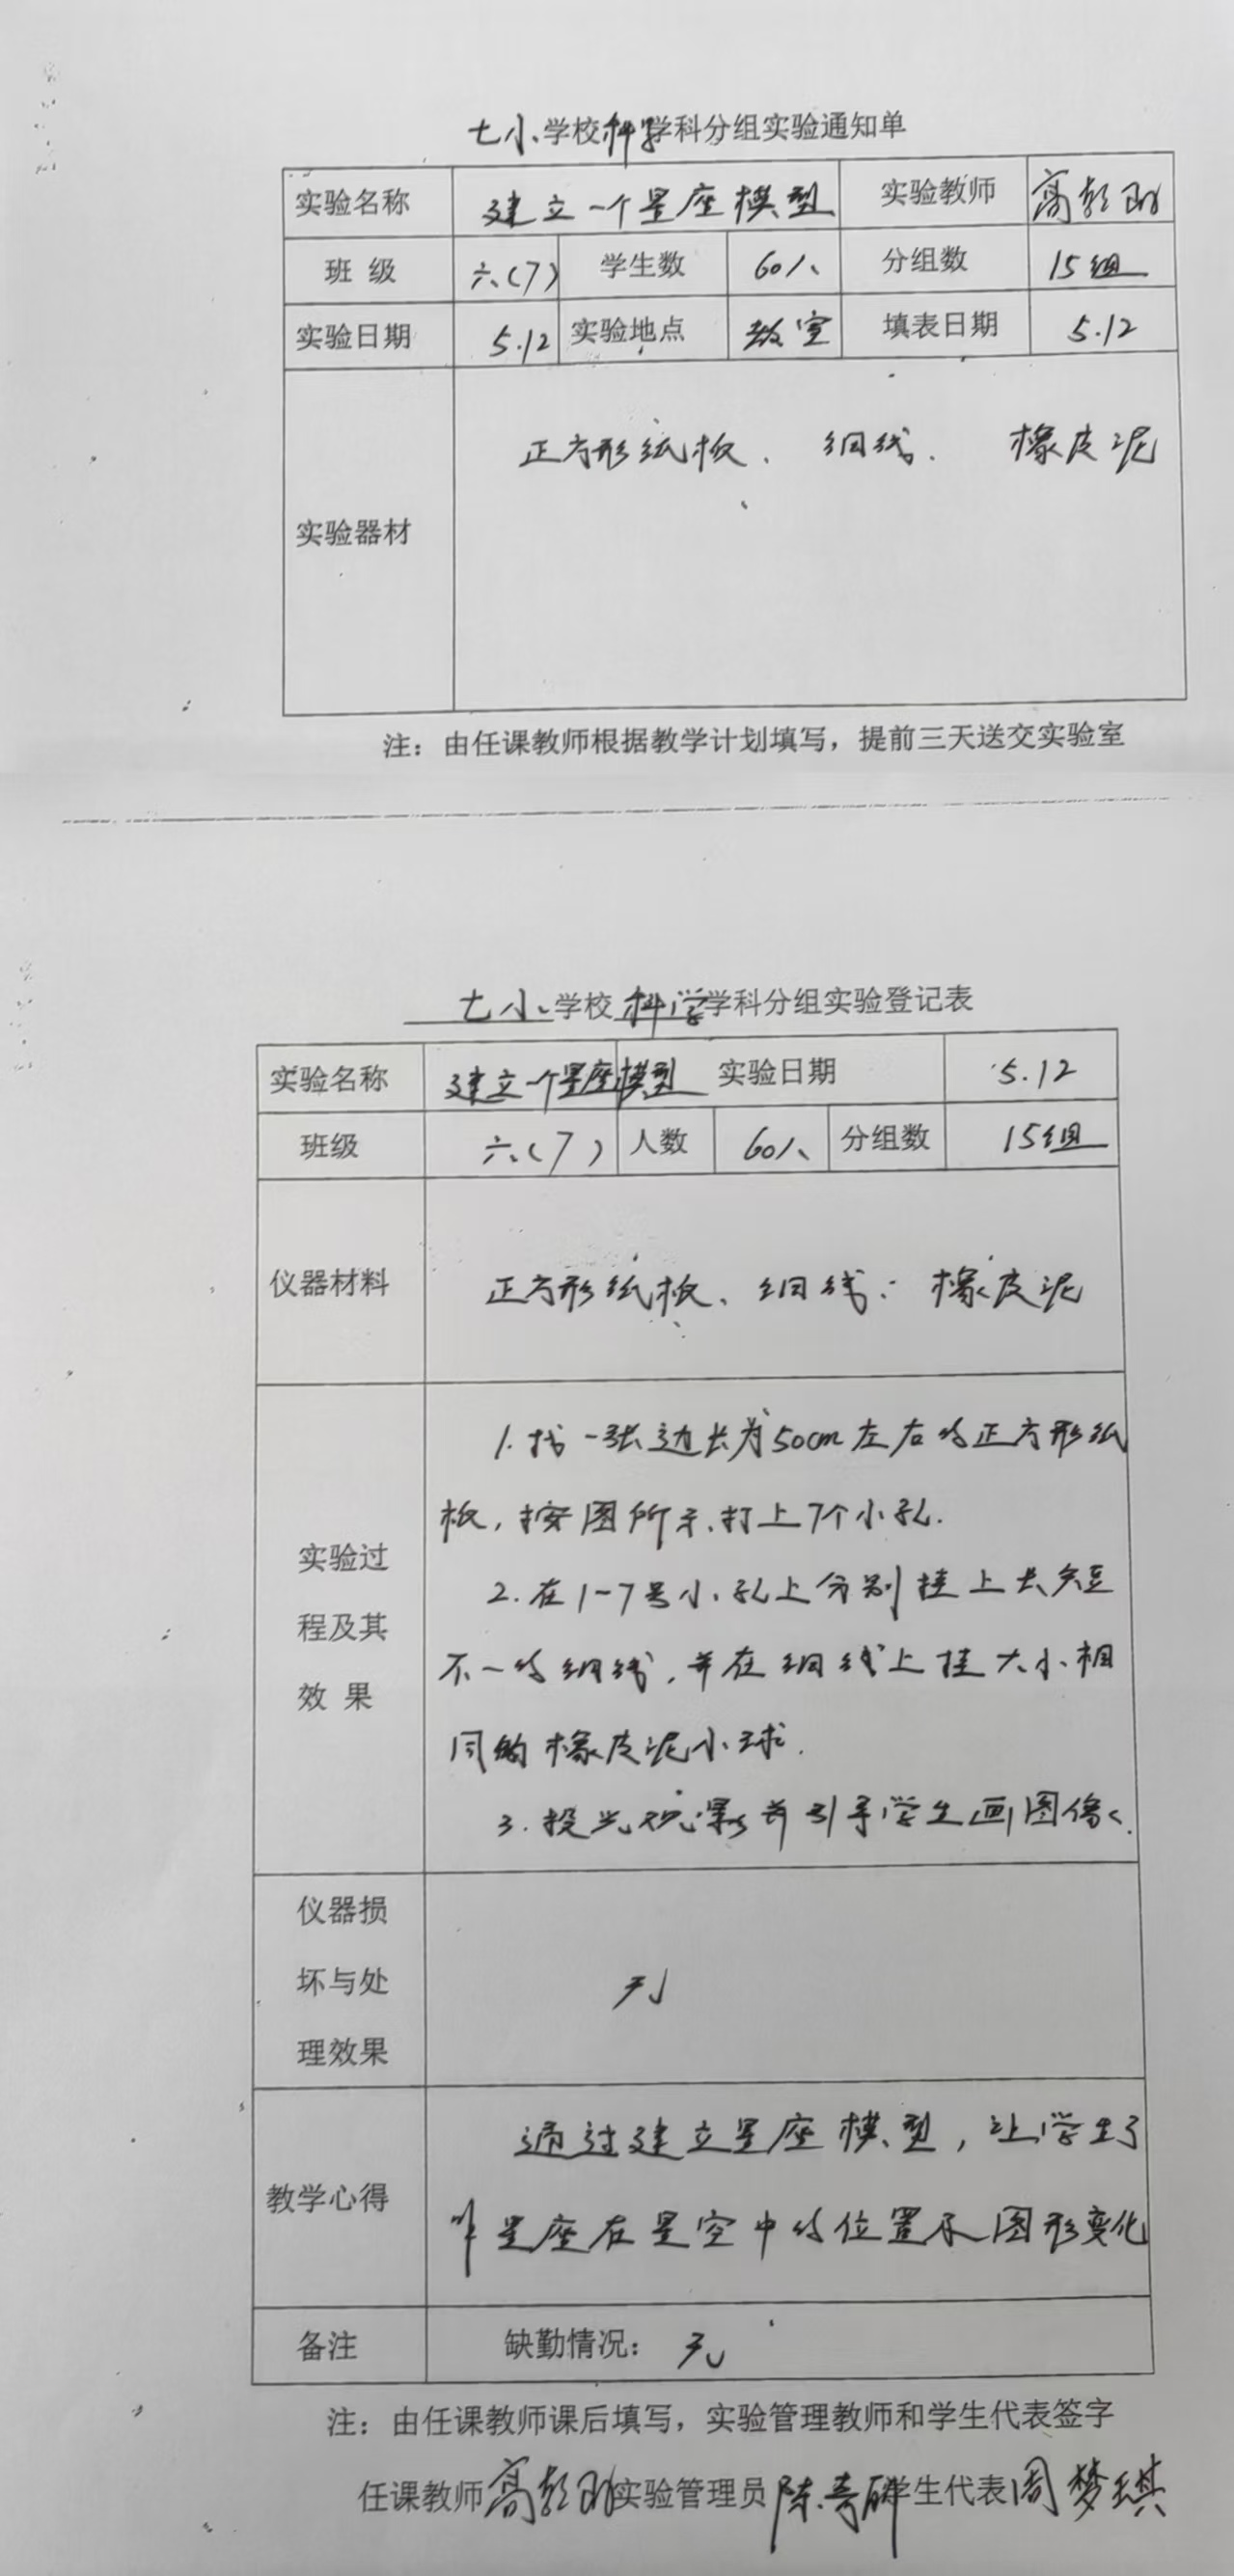 七小学校科学学科分组实验通知单
实验名称 建立一个星座模型 实验教师 高
班 级 六(7) 学生数 60人 分组数 15组
实验日期 5.12 实验地点 教室 填表日期 5.12
实验器材 正方形纸板、细线、橡皮泥
注：由任课教师根据教学计划填写，提前三天送交实验室
七小学校科学学科分组实验登记表
实验名称 建立一个星座模型 实验日期 5.12
班级 六(7) 人数 60人 分组数 15组
仪器材料 正方形纸板、细线、橡皮泥
实验过
程及其
效 果
1.找一张边长为50cm左右的正方形纸
板,按图所示,打上7个小孔.
2.在1-7号小孔上分别挂上长短
不一的细线,并在细线上挂大小相
同的橡皮泥小球.
3.投光观影并引导学生画图像.
仪器损
坏与处
理效果
无
教学心得
通过建立星座模型,让学生了
解星座在星空中的位置及图形变化
备注 缺勤情况：无
注：由任课教师课后填写，实验管理教师和学生代表签字
任课教师高 实验管理员 陈奇 学生代表周梦琪